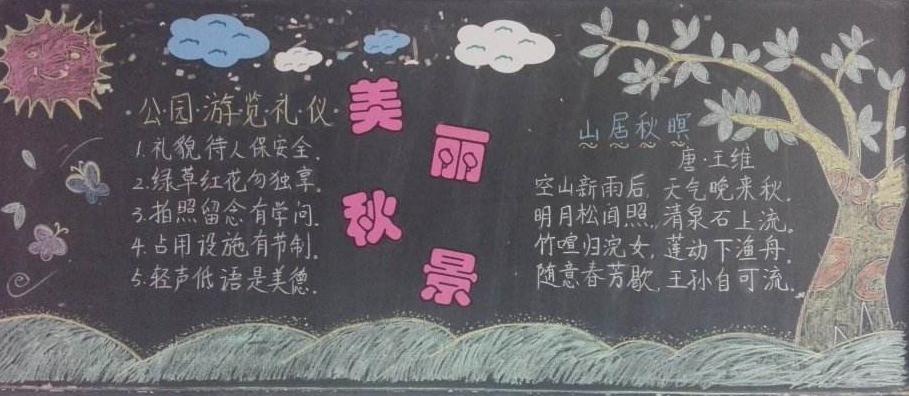 公园·游·览·礼·仪·
1.礼貌待人保安全.
2.绿草红花勿独享.
3.拍照留念有学问.
4.占用设施有节制.
5.轻声低语是美德.
美丽秋景
山居秋暝
唐·王维
空山新雨后,天气晚来秋.
明月松间照,清泉石上流.
竹喧归浣女,莲动下渔舟.
随意春芳歇,王孙自可流.